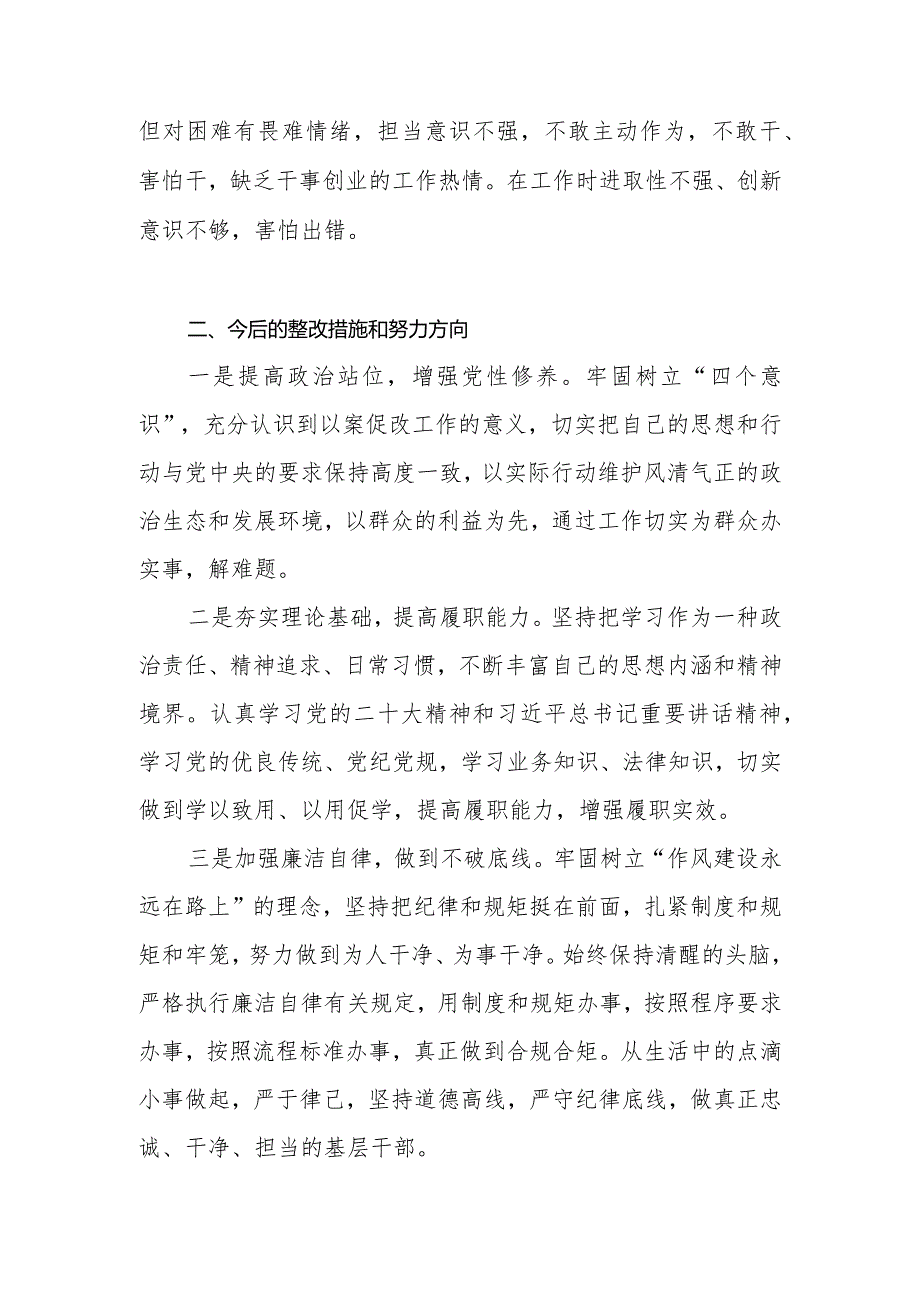 但对困难有畏难情绪，担当意识不强，不敢主动作为，不敢干、
害怕干，缺乏干事创业的工作热情。在工作时进取性不强、创新
意识不够，害怕出错。
二、今后的整改措施和努力方向
一是提高政治站位，增强党性修养。牢固树立“四个意
识”，充分认识到以案促改工作的意义，切实把自己的思想和行
动与党中央的要求保持高度一致，以实际行动维护风清气正的政
治生态和发展环境，以群众的利益为先，通过工作切实为群众办
实事，解难题。
二是夯实理论基础，提高履职能力。坚持把学习作为一种政
治责任、精神追求、日常习惯，不断丰富自己的思想内涵和精神
境界。认真学习党的二十大精神和习近平总书记重要讲话精神，
学习党的优良传统、党纪党规，学习业务知识、法律知识，切实
做到学以致用、以用促学，提高履职能力，增强履职实效。
三是加强廉洁自律，做到不破底线。牢固树立“作风建设永
远在路上”的理念，坚持把纪律和规矩挺在前面，扎紧制度和规
矩和牢笼，努力做到为人干净、为事干净。始终保持清醒的头脑，
严格执行廉洁自律有关规定，用制度和规矩办事，按照程序要求
办事，按照流程标准办事，真正做到合规合矩。从生活中的点滴
小事做起，严于律己，坚持道德高线，严守纪律底线，做真正忠
诚、干净、担当的基层干部。